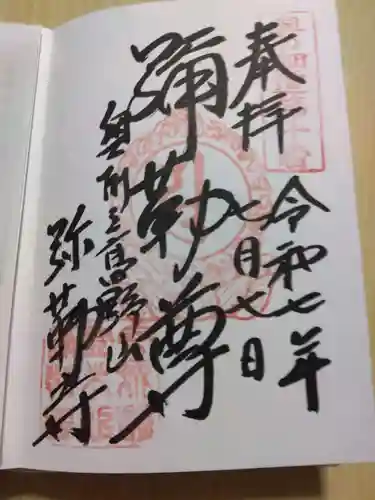 奉拝
令和七年
七月七日
彌勒尊
奥州三高野山
弥勒寺